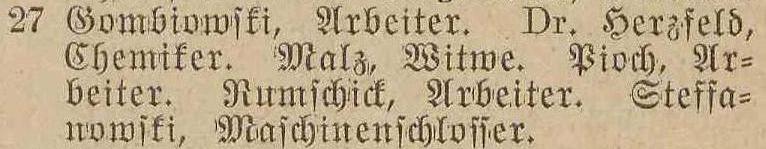 27 Gombiowſki, Arbeiter. Dr. Herzfeld,
Chemiker. Malz, Witwe. Pioch, Ar⸗
beiter. Rumſchick, Arbeiter. Steffa⸗
nowſki, Maſchinenſchloſſer.